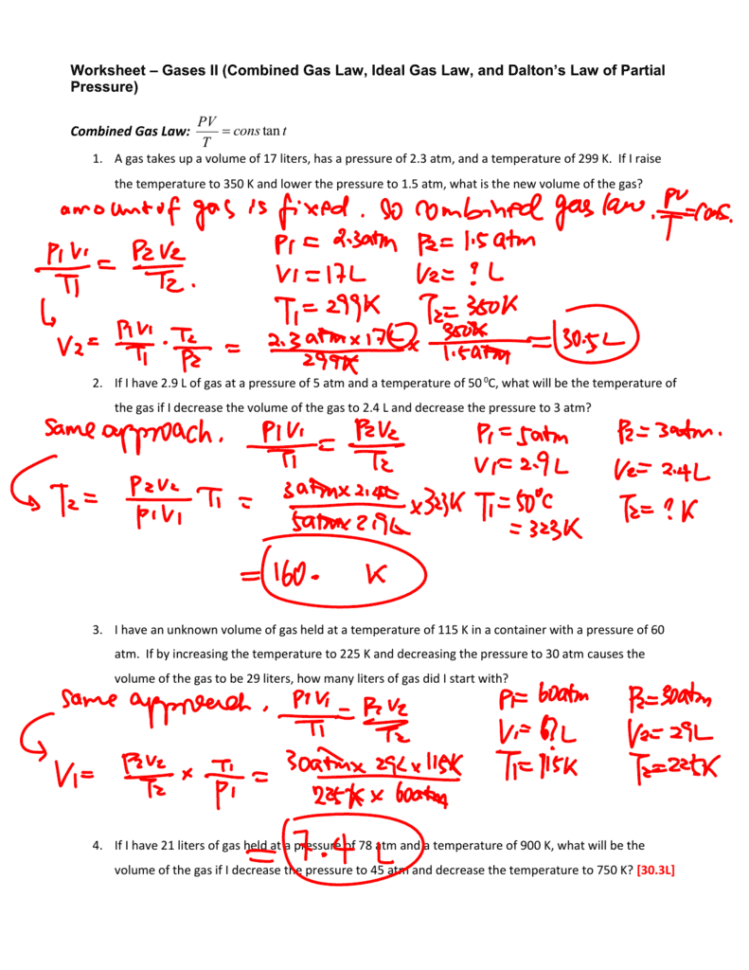 Worksheet – Gases II (Combined Gas Law, Ideal Gas Law, and Dalton's Law of Partial
Pressure)
Combined Gas Law: PV/T = cons tan t
1. A gas takes up a volume of 17 liters, has a pressure of 2.3 atm, and a temperature of 299 K. If I raise
the temperature to 350 K and lower the pressure to 1.5 atm, what is the new volume of the gas?
amount of gas is fixed. So combined gas law. PV/T = cons.
P1V1/T1 = P2V2/T2. P1 = 2.3atm P2 = 1.5 atm
V1 = 17L V2 = ? L
T1 = 299K T2 = 350K
V2 = P1V1/T1 · T2/P2 = 2.3 atm x 17L/299K x 350K/1.5atm = 30.5L
2. If I have 2.9 L of gas at a pressure of 5 atm and a temperature of 50 ⁰C, what will be the temperature of
the gas if I decrease the volume of the gas to 2.4 L and decrease the pressure to 3 atm?
Same approach. P1V1/T1 = P2V2/T2 P1 = 5atm P2 = 3atm.
V1 = 2.9L V2 = 2.4L
T2 = P2V2/P1V1 T1 = 3atm x 2.4L/5atm x 2.9L x 323K T1 = 50°C T2 = ? K
= 323K
= 160. K
3. I have an unknown volume of gas held at a temperature of 115 K in a container with a pressure of 60
atm. If by increasing the temperature to 225 K and decreasing the pressure to 30 atm causes the
volume of the gas to be 29 liters, how many liters of gas did I start with?
Same approach. P1V1/T1 = P2V2/T2 P1 = 60atm P2 = 30atm
V1 = ? L V2 = 29L
V1 = P2V2/T2 x T1/P1 = 30atm x 29L x 115K/225K x 60atm T1 = 115K T2 = 225K
= 7.4 L
4. If I have 21 liters of gas held at a pressure of 78 atm and a temperature of 900 K, what will be the
volume of the gas if I decrease the pressure to 45 atm and decrease the temperature to 750 K? [30.3L]